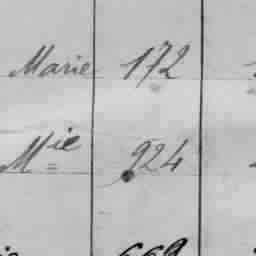 Marie 172
Mie 924
669